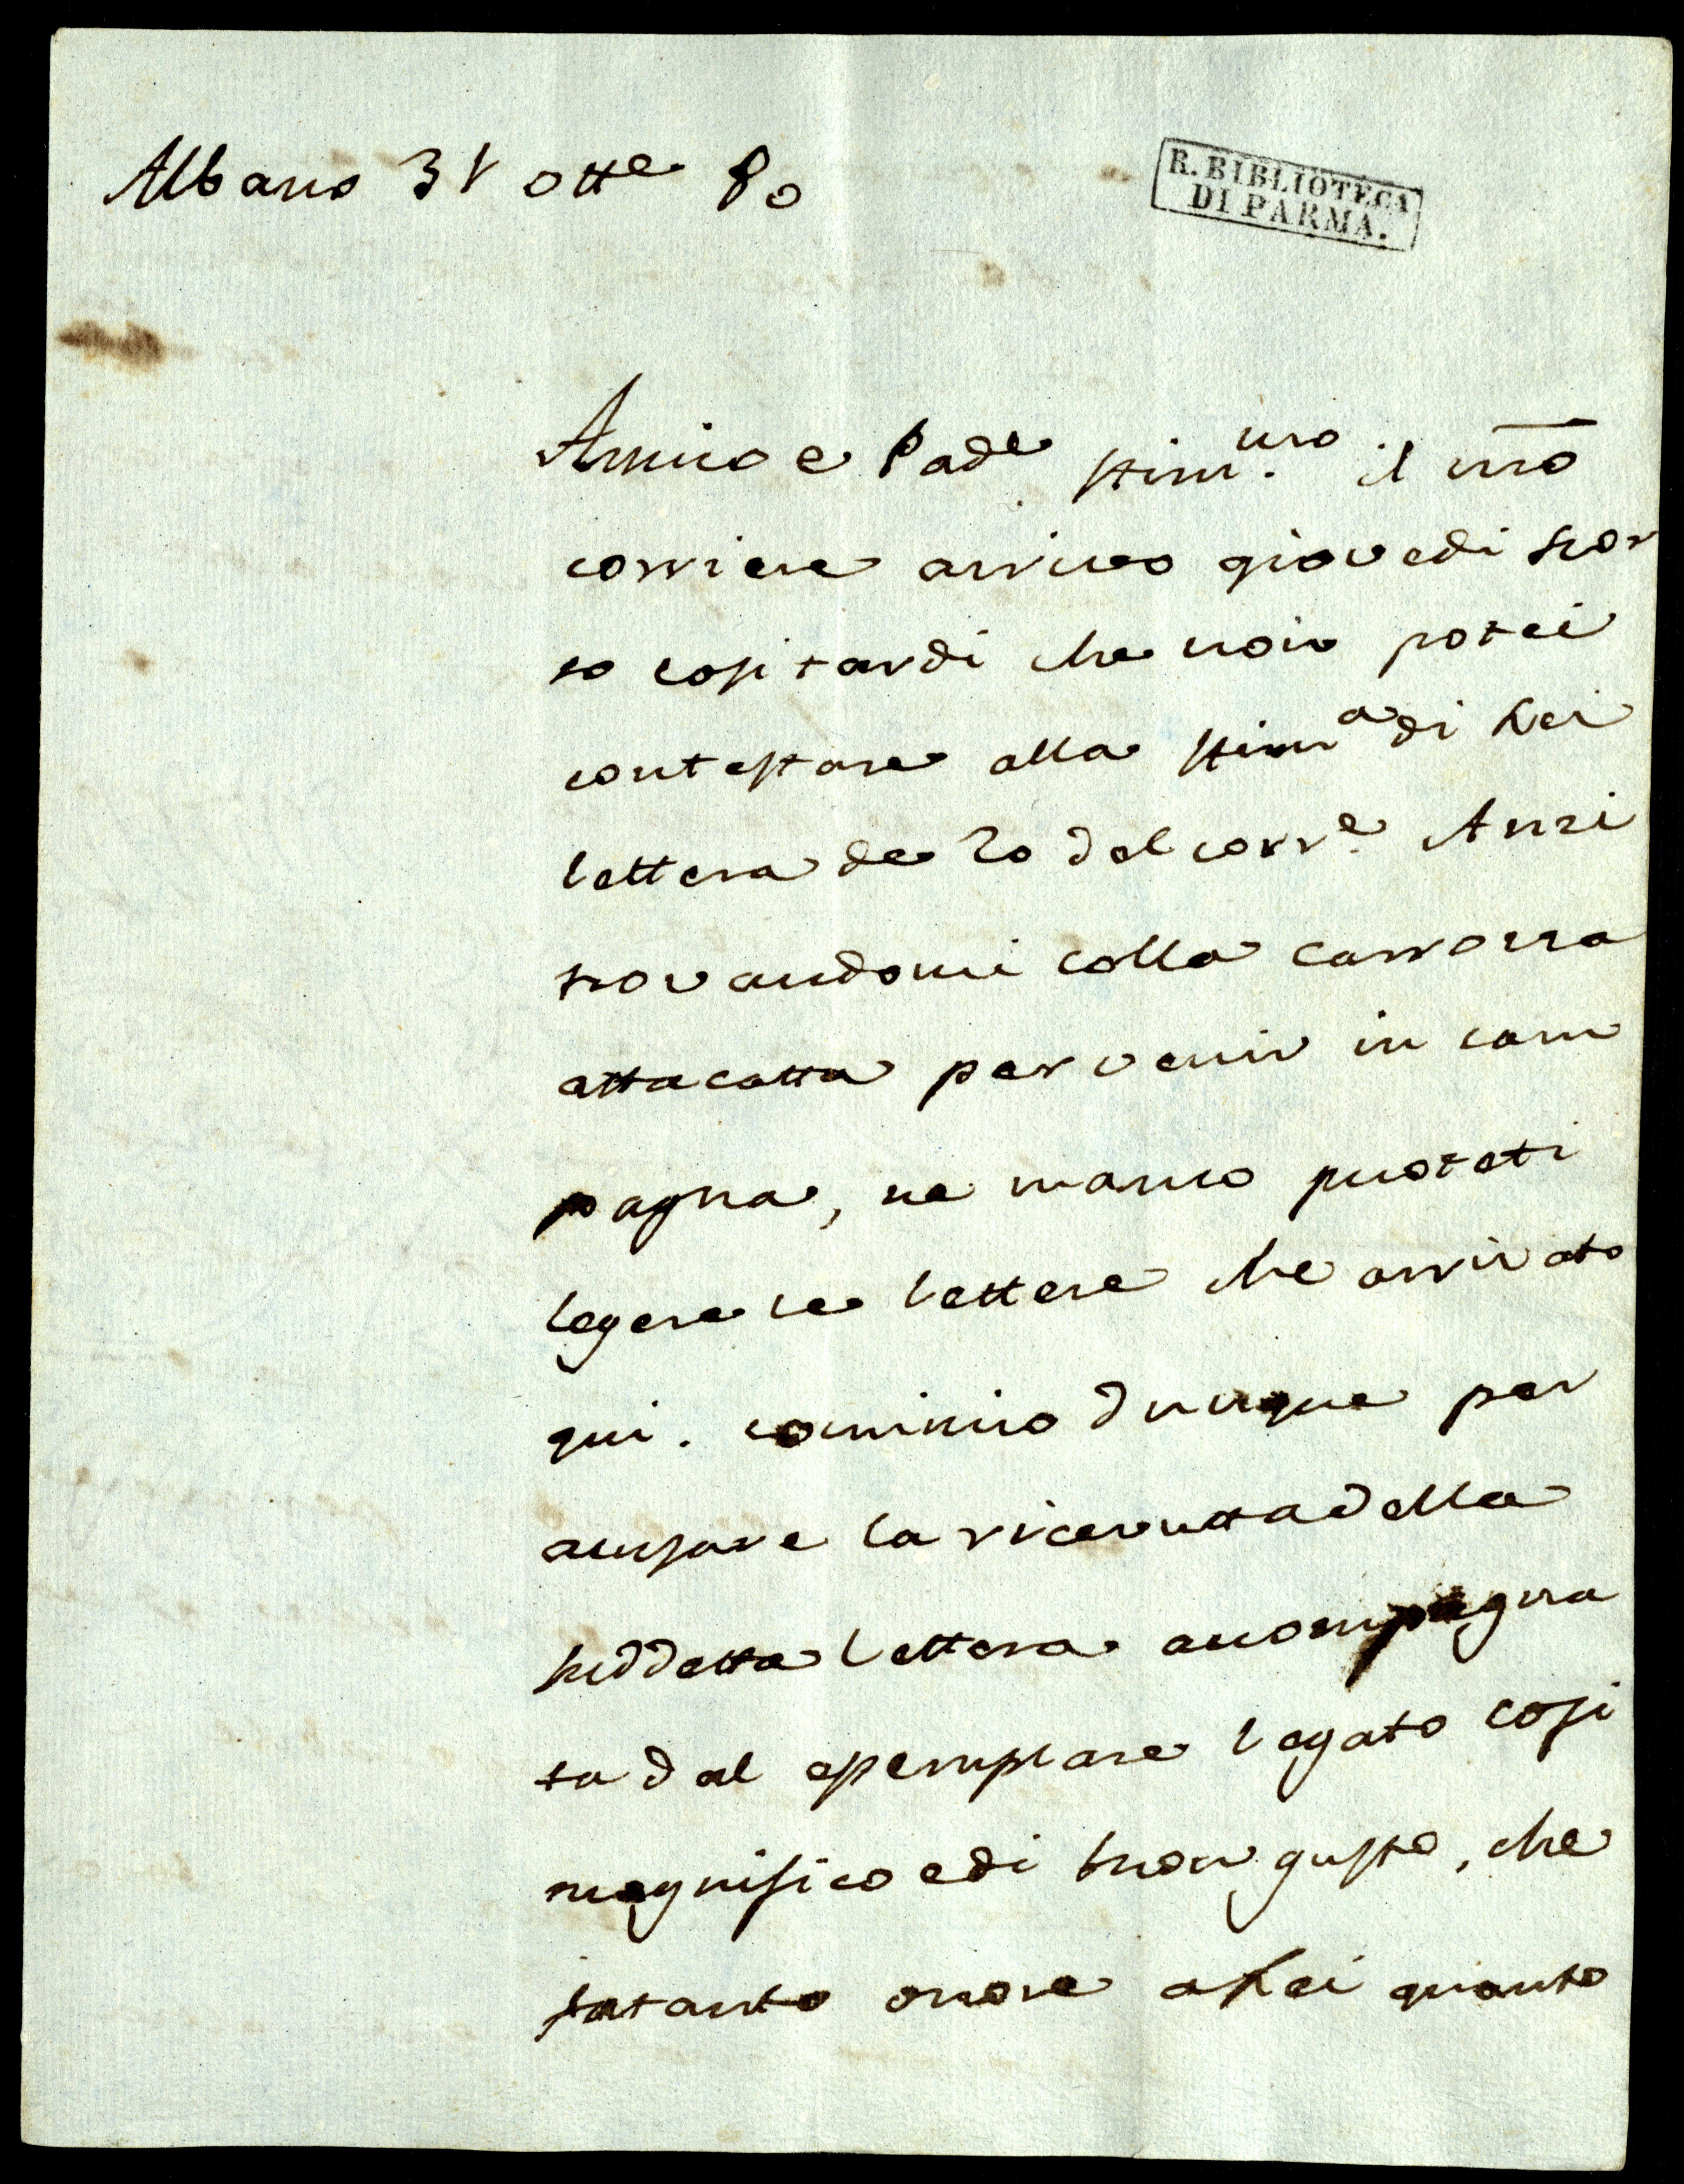 Albano 31 otte 80
R. BIBLIOTECA
DI PARMA.
Amico e Pade stimmo. il nro
corriere arrivo giovedi scor
so cosi tardi che non potei
contestare alla stima di Lei
lettera de 20 del corre. Anzi
trovandomi colla carrozza
attacatta per venir in cam
pagna, ne manco puoteti
legere le lettere che arrivato
qui. comincio dunque per
acusare la ricevutta della
suddetta lettera acompagna
ta dal esemplare legato cosi
magnifico e di buon gusto, che
fa tanto onore a Lei quanto